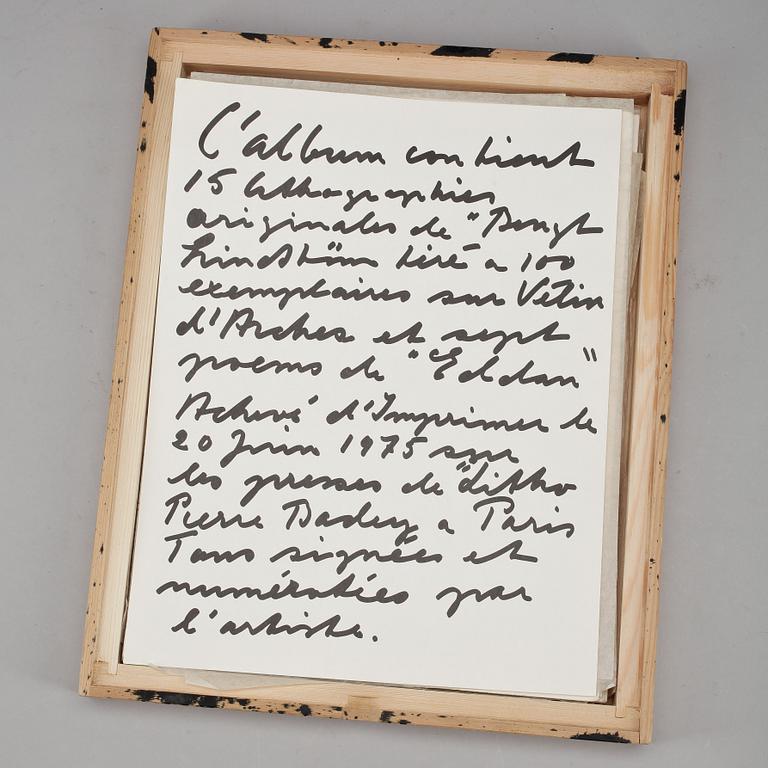 L'album contient
15 lithographies
originales de "Bengt
Lindström tiré a 100
exemplaires sur Vélin
d'Arches et sept
poems de "Eddan"
Achevé d'Imprimer le
20 Juin 1975 sur
les presses de "Litho
Pierre Badey a Paris
Tous signées et
numérotées par
l'artiste.